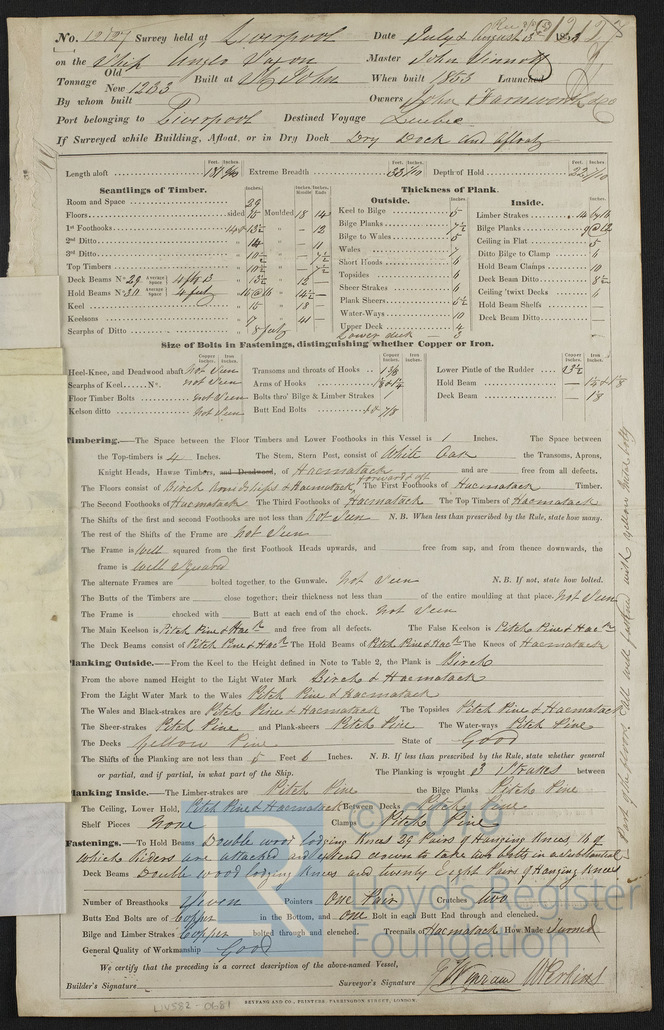 No. 12707 Survey held at Liverpool Date July & August 13 1853
on the Ship Anglo Saxon Master John Sinnott
Tonnage Old New 1233 Built at St John When built 1853 Launched
By whom built Owners John Farnworth & Co
Port belonging to Liverpool Destined Voyage Quebec
If Surveyed while Building, Afloat, or in Dry Dock Dry Dock and afloat
Length aloft Extreme Breadth Depth of Hold
Scantlings of Timber.
Room and Space 29
Floors sided 15 Moulded 18 14
1st Foothooks 13½ " — 12
2nd Ditto 14 " — 11
3rd Ditto 10½ " — 7½
Top Timbers 10½ " — 7½
Deck Beams No. 29 Average Space 4 ft 3 13½ " 12 —
Hold Beams No. 30 Average Space 4 feet 14½ —
Keel 15 " 18 —
Keelsons 17 " 41 —
Scarphs of Ditto 8 feet
Thickness of Plank.
Outside.
Keel to Bilge 5
Bilge Planks 7½
Bilge to Wales 5
Wales 7
Short Hoods 6
Topsides 6
Sheer Strakes 6
Plank Sheers 5½
Water-Ways 10
Upper Deck 4
Lower deck — 3
Inside.
Limber Strakes 14 by 16
Bilge Planks 9 @ 12
Ceiling in Flat 5
Ditto Bilge to Clamp 6
Hold Beam Clamps 10
Deck Beam Ditto 8½
Ceiling 'twixt Decks 6
Hold Beam Shelfs —
Deck Beam Ditto —
Size of Bolts in Fastenings, distinguishing whether Copper or Iron.
Copper Inches. Iron Inches.
Heel-Knee, and Deadwood abaft not seen
Scarphs of Keel No. not seen
Floor Timber Bolts not seen
Kelson ditto not seen
Transoms and throats of Hooks 1 3/8
Arms of Hooks 1 1/8 & 1 1/4
Bolts thro' Bilge & Limber Strakes 1
Butt End Bolts 7/8
Lower Pintle of the Rudder 3½
Hold Beam —
Deck Beam — 1 1/8
Timbering.—The Space between the Floor Timbers and Lower Foothooks in this Vessel is 1 Inches. The Space between
the Top-timbers is 4 Inches. The Stem, Stern Post, consist of White Oak the Transoms, Aprons,
Knight Heads, Hawse Timbers, and Deadwood, of Hacmatack and are free from all defects.
The Floors consist of Birch amidships & Hacmatack forward & aft The First Foothooks of Hacmatack Timber.
The Second Foothooks of Hacmatack The Third Foothooks of Hacmatack The Top Timbers of Hacmatack
The Shifts of the first and second Foothooks are not less than not seen N.B. When less than prescribed by the Rule, state how many.
The rest of the Shifts of the Frame are not seen
The Frame is well squared from the first Foothook Heads upwards, and free from sap, and from thence downwards, the
frame is well squared
The alternate Frames are bolted together to the Gunwale. not seen N.B. If not, state how bolted.
The Butts of the Timbers are close together; their thickness not less than of the entire moulding at that place. not seen
The Frame is chocked with Butt at each end of the chock. not seen
The Main Keelson is Pitch Pine & Hack and free from all defects. The False Keelson is Pitch Pine & Hack
The Deck Beams consist of Pitch Pine & Hack The Hold Beams of Pitch Pine & Hack The Knees of Hacmatack
Planking Outside.—From the Keel to the Height defined in Note to Table 2, the Plank is Birch
From the above named Height to the Light Water Mark Birch & Hacmatack
From the Light Water Mark to the Wales Pitch Pine & Hacmatack
The Wales and Black-strakes are Pitch Pine & Hacmatack The Topsides Pitch Pine & Hacmatack
The Sheer-strakes Pitch Pine and Plank-sheers Pitch Pine The Water-ways Pitch Pine
The Decks Yellow Pine State of Good
The Shifts of the Planking are not less than 5 Feet 6 Inches. N.B. If less than prescribed by the Rule, state whether general
or partial, and if partial, in what part of the Ship. The Planking is wrought 3 Strakes between
Planking Inside.—The Limber-strakes are Pitch Pine the Bilge Planks Pitch Pine
The Ceiling, Lower Hold, Pitch Pine & Hacmatack Between Decks Pitch Pine
Shelf Pieces None Clamps Pitch Pine
Fastenings.—To Hold Beams Double wood lodging Knees 29 Pairs of Hanging Knees 16 of
which Riders are attached and extend down to take two bolts in a substantial
Deck Beams Double wood lodging Knees and twenty Eight Pairs of Hanging Knees
Number of Breasthooks Eleven Pointers One Pair Crutches two
Butts End Bolts are of Copper in the Bottom, and One Bolt in each Butt End through and clenched.
Bilge and Limber Strakes Copper bolted through and clenched. Treenails of Hacmatack How Made Turned
General Quality of Workmanship Good
We certify that the preceding is a correct description of the above-named Vessel,
Builder's Signature Surveyor's Signature
SEYFANG AND CO., PRINTERS, FARRINGDON STREET, LONDON.
LIV582-0681
© 2019
Lloyd's Register
Foundation
LR